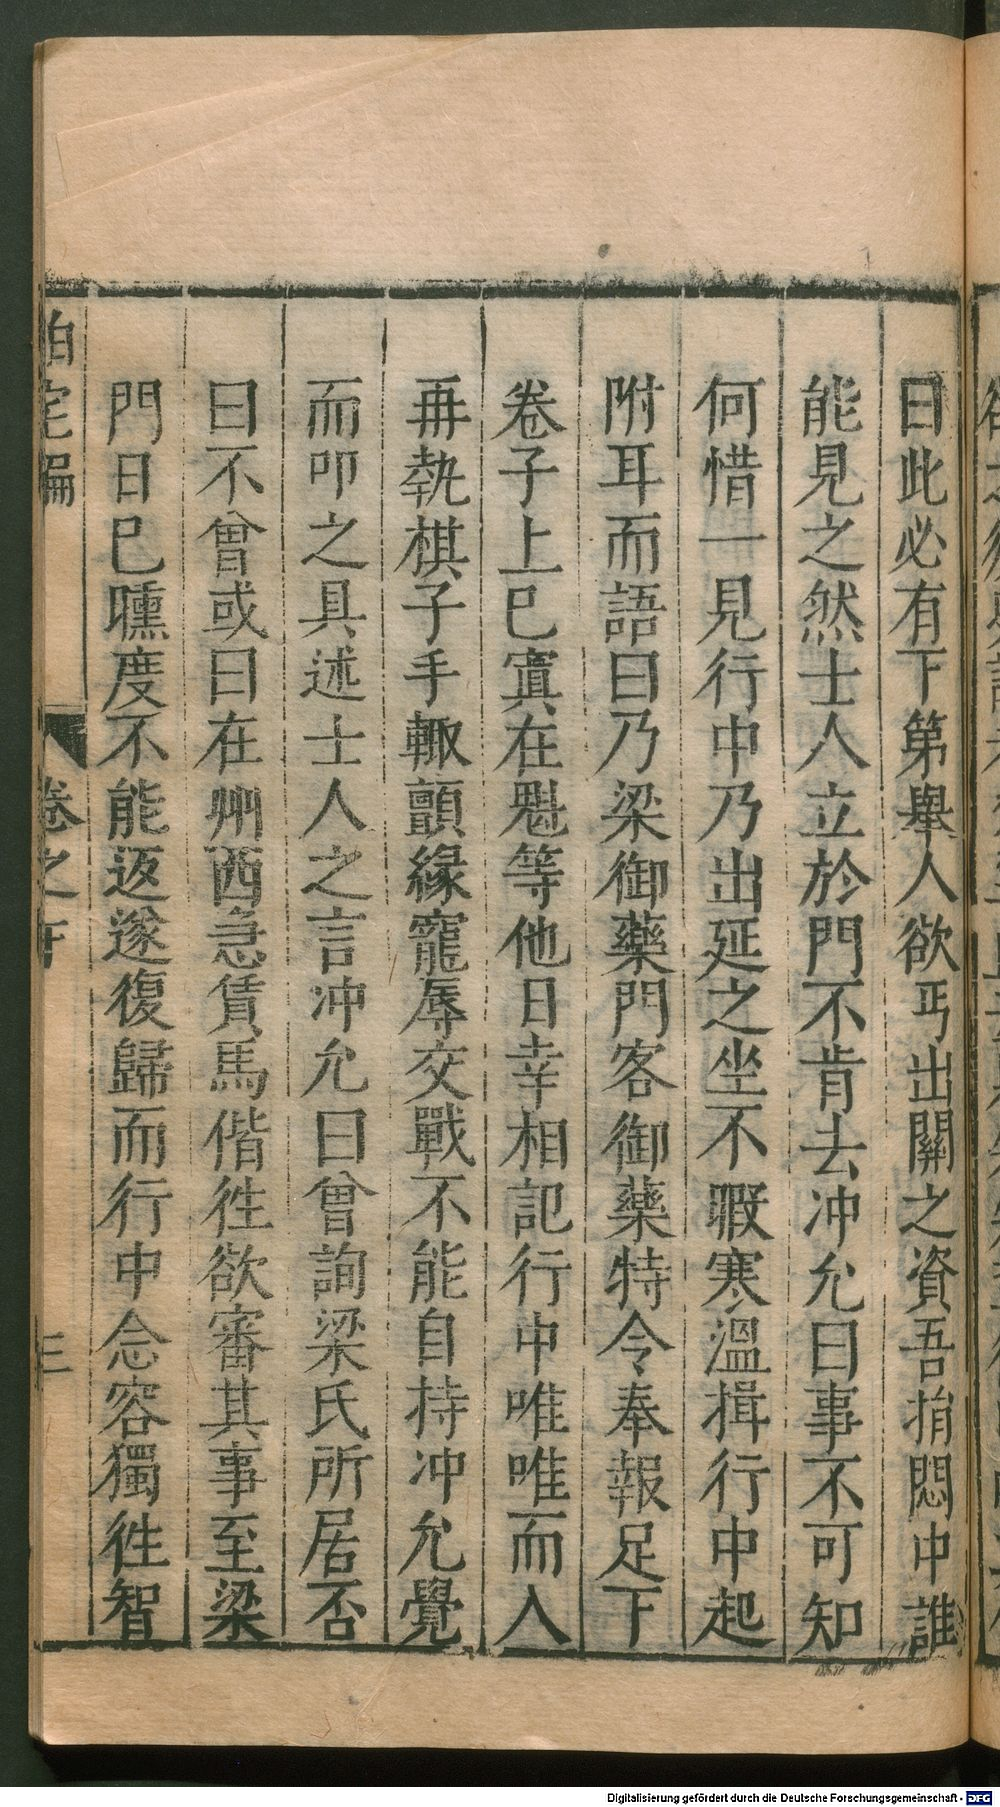 曰此必有下第舉人欲丐出關之資吾捐悶中誰
能見之然士人立於門不肯去冲允曰事不可知
何惜一見行中乃出延之坐不暇寒溫揖行中起
附耳而語曰乃梁御藥門客御藥特令奉報足下
卷子上已寘在魁等他日幸相記行中唯唯而入
再執棋子手輙顫緣寵辱交戰不能自持冲允覺
而叩之具述士人之言冲允曰曾詢梁氏所居否
曰不曾或曰在州西急賃馬偕徃欲審其事至梁
門日已曛度不能返遂復歸而行中念容獨徃智
泊宅編
卷之下
三
Digitalisierung gefördert durch die Deutsche Forschungsgemeinschaft - DFG